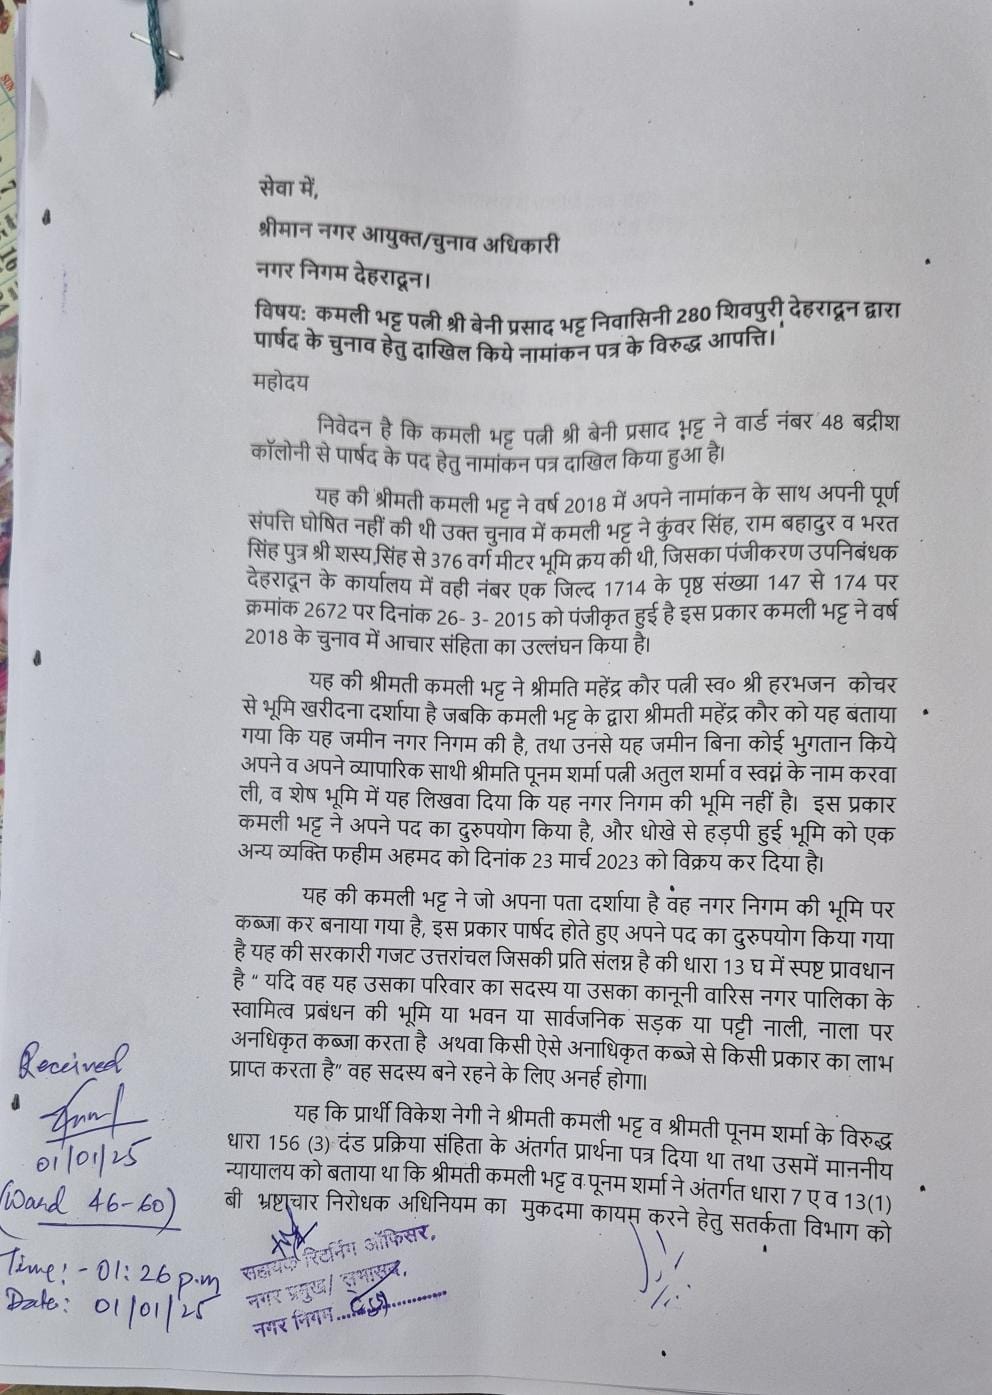 सेवा में,
श्रीमान नगर आयुक्त/चुनाव अधिकारी
नगर निगम देहरादून।
विषय: कमली भट्ट पत्नी श्री बेनी प्रसाद भट्ट निवासिनी 280 शिवपुरी देहरादून द्वारा
पार्षद के चुनाव हेतु दाखिल किये नामांकन पत्र के विरुद्ध आपत्ति।
महोदय
निवेदन है कि कमली भट्ट पत्नी श्री बेनी प्रसाद भट्ट ने वार्ड नंबर 48 बद्रीश
कॉलोनी से पार्षद के पद हेतु नामांकन पत्र दाखिल किया हुआ है।
यह की श्रीमती कमली भट्ट ने वर्ष 2018 में अपने नामांकन के साथ अपनी पूर्ण
संपत्ति घोषित नहीं की थी उक्त चुनाव में कमली भट्ट ने कुंवर सिंह, राम बहादुर व भरत
सिंह पुत्र श्री शस्य सिंह से 376 वर्ग मीटर भूमि क्रय की थी, जिसका पंजीकरण उपनिबंधक
देहरादून के कार्यालय में वही नंबर एक जिल्द 1714 के पृष्ठ संख्या 147 से 174 पर
क्रमांक 2672 पर दिनांक 26- 3- 2015 को पंजीकृत हुई है इस प्रकार कमली भट्ट ने वर्ष
2018 के चुनाव में आचार संहिता का उल्लंघन किया है।
यह की श्रीमती कमली भट्ट ने श्रीमति महेंद्र कौर पत्नी स्व० श्री हरभजन कोचर
से भूमि खरीदना दर्शाया है जबकि कमली भट्ट के द्वारा श्रीमती महेंद्र कौर को यह बताया
गया कि यह जमीन नगर निगम की है, तथा उनसे यह जमीन बिना कोई भुगतान किये
अपने व अपने व्यापारिक साथी श्रीमति पूनम शर्मा पत्नी अतुल शर्मा व स्वयं के नाम करवा
ली, व शेष भूमि में यह लिखवा दिया कि यह नगर निगम की भूमि नहीं है। इस प्रकार
कमली भट्ट ने अपने पद का दुरुपयोग किया है, और धोखे से हड़पी हुई भूमि को एक
अन्य व्यक्ति फहीम अहमद को दिनांक 23 मार्च 2023 को विक्रय कर दिया है।
यह की कमली भट्ट ने जो अपना पता दर्शाया है वह नगर निगम की भूमि पर
कब्जा कर बनाया गया है, इस प्रकार पार्षद होते हुए अपने पद का दुरुपयोग किया गया
है यह की सरकारी गजट उत्तरांचल जिसकी प्रति संलग्न है की धारा 13 घ में स्पष्ट प्रावधान
है “ यदि वह यह उसका परिवार का सदस्य या उसका कानूनी वारिस नगर पालिका के
स्वामित्व प्रबंधन की भूमि या भवन या सार्वजनिक सड़क या पट्टी नाली, नाला पर
अनधिकृत कब्जा करता है अथवा किसी ऐसे अनाधिकृत कब्जे से किसी प्रकार का लाभ
प्राप्त करता है” वह सदस्य बने रहने के लिए अनर्ह होगा।
यह कि प्रार्थी विकेश नेगी ने श्रीमती कमली भट्ट व श्रीमती पूनम शर्मा के विरुद्ध
धारा 156 (3) दंड प्रक्रिया संहिता के अंतर्गत प्रार्थना पत्र दिया था तथा उसमें माननीय
न्यायालय को बताया था कि श्रीमती कमली भट्ट व पूनम शर्मा ने अंतर्गत धारा 7 ए व 13(1)
बी भ्रष्टाचार निरोधक अधिनियम का मुकदमा कायम करने हेतु सतर्कता विभाग को
Received
01/01/25
(Ward 46-60)
Time:- 01:26 p.m
Date: 01/01/25
सहायक रिटर्निंग ऑफिसर,
नगर प्रमुख/ सभासद,
नगर निगम..................